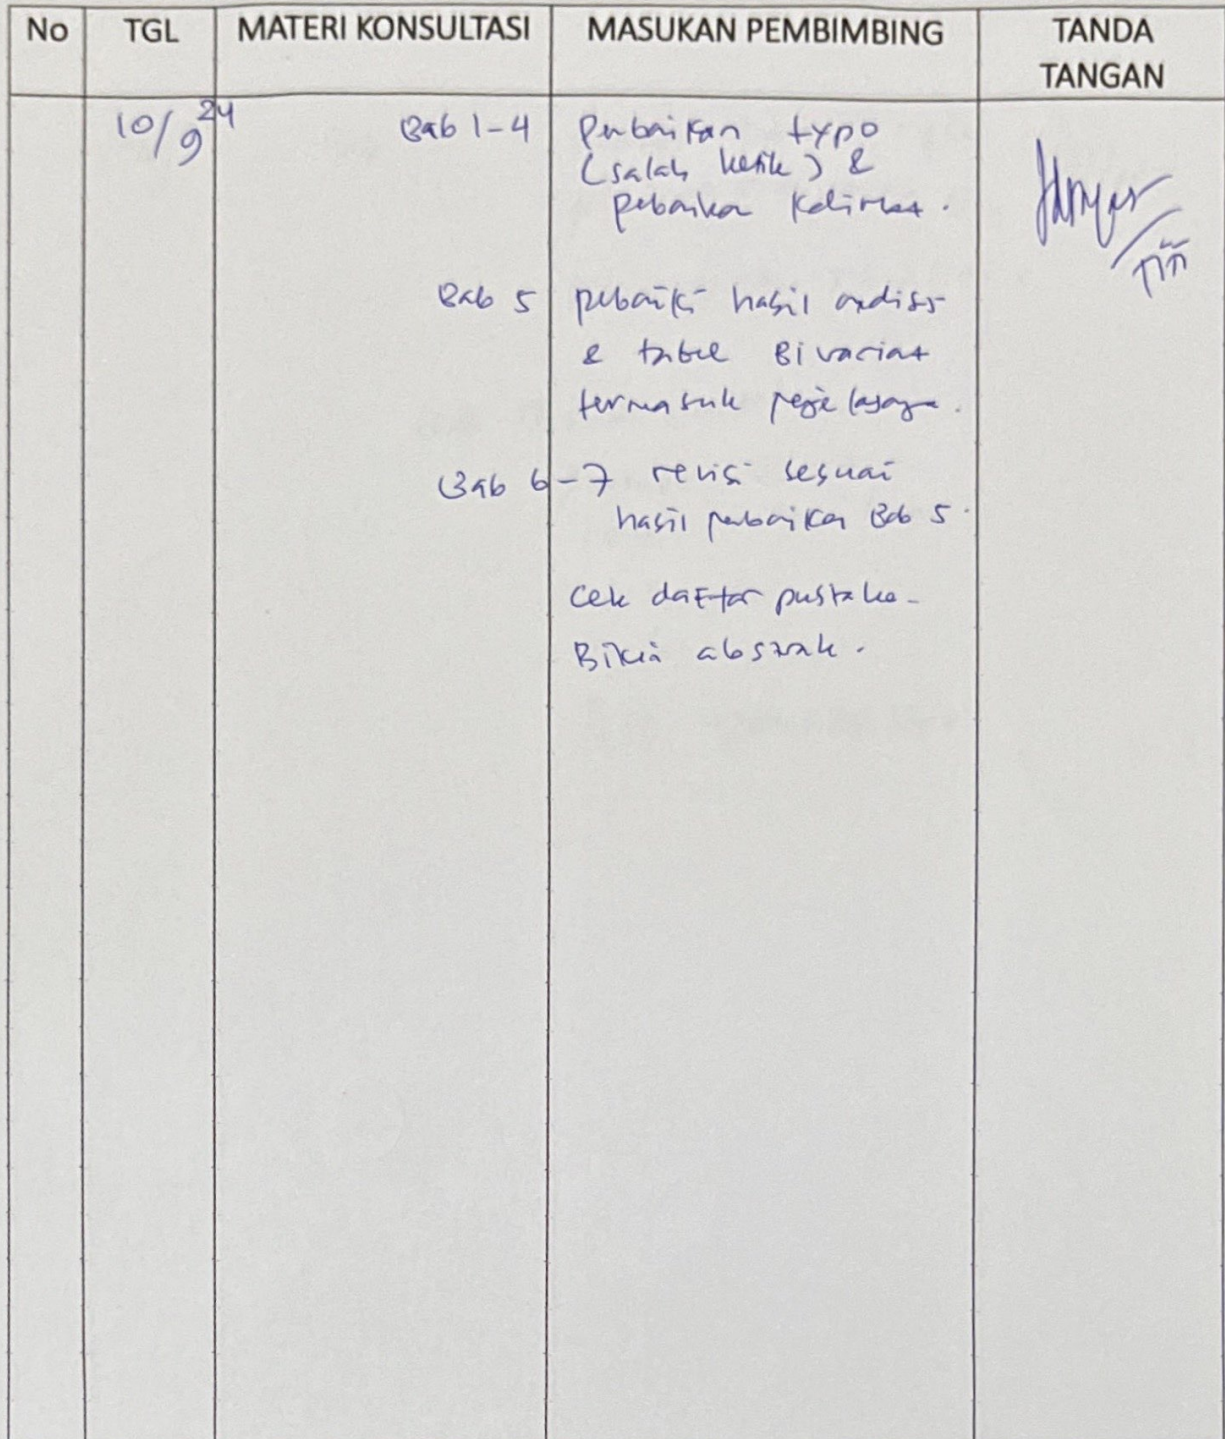 No TGL MATERI KONSULTASI MASUKAN PEMBIMBING TANDA TANGAN
10/9 24 Bab 1-4 perbaikan typo
(salah ketik) &
perbaikan kalimat.
Bab 5 perbaiki hasil analisis
& tabel Bivariat
termasuk penjelasannya.
Bab 6-7 revisi sesuai
hasil perbaikan Bab 5.
Cek daftar pustaka.
Bikin abstrak.